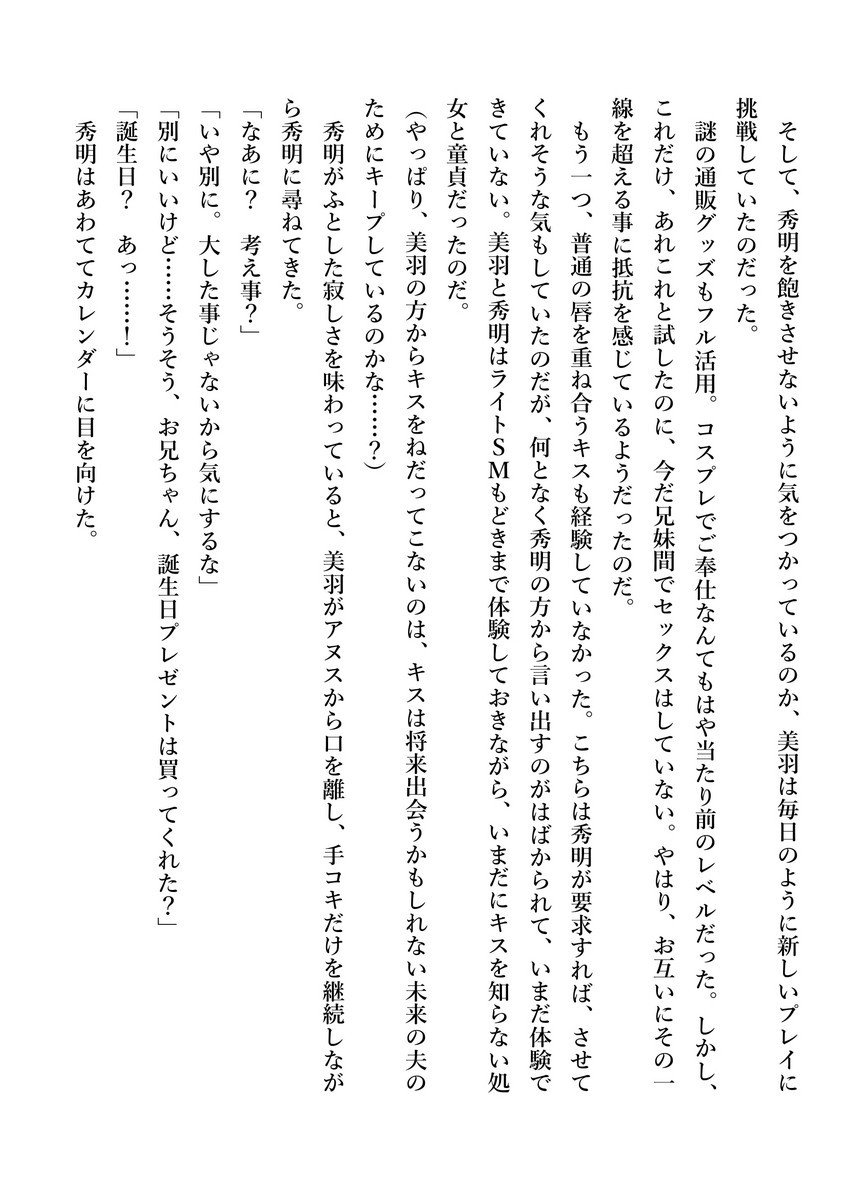 そして、秀明を飽きさせないように気をつかっているのか、美羽は毎日のように新しいプレイに
挑戦していたのだった。
謎の通販グッズもフル活用。コスプレでご奉仕なんてもはや当たり前のレベルだった。しかし、
これだけ、あれこれと試したのに、今だ兄妹間でセックスはしていない。やはり、お互いにその一
線を超える事に抵抗を感じているようだったのだ。
もう一つ、普通の唇を重ね合うキスも経験していなかった。こちらは秀明が要求すれば、させて
くれそうな気もしていたのだが、何となく秀明の方から言い出すのがはばかられて、いまだ体験で
きていない。美羽と秀明はライトＳＭもどきまで体験しておきながら、いまだにキスを知らない処
女と童貞だったのだ。
（やっぱり、美羽の方からキスをねだってこないのは、キスは将来出会うかもしれない未来の夫の
ためにキープしているのかな……？）
秀明がふとした寂しさを味わっていると、美羽がアヌスから口を離し、手コキだけを継続しなが
ら秀明に尋ねてきた。
「なあに？　考え事？」
「いや別に。大した事じゃないから気にするな」
「別にいいけど……そうそう、お兄ちゃん、誕生日プレゼントは買ってくれた？」
「誕生日？　あっ……！」
秀明はあわててカレンダーに目を向けた。